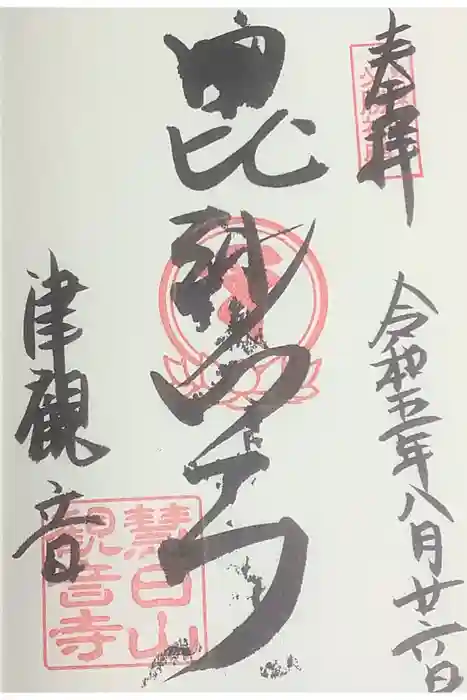 奉拝
令和五年八月廿六日
毘沙門天
津觀音
慧日山
観音寺